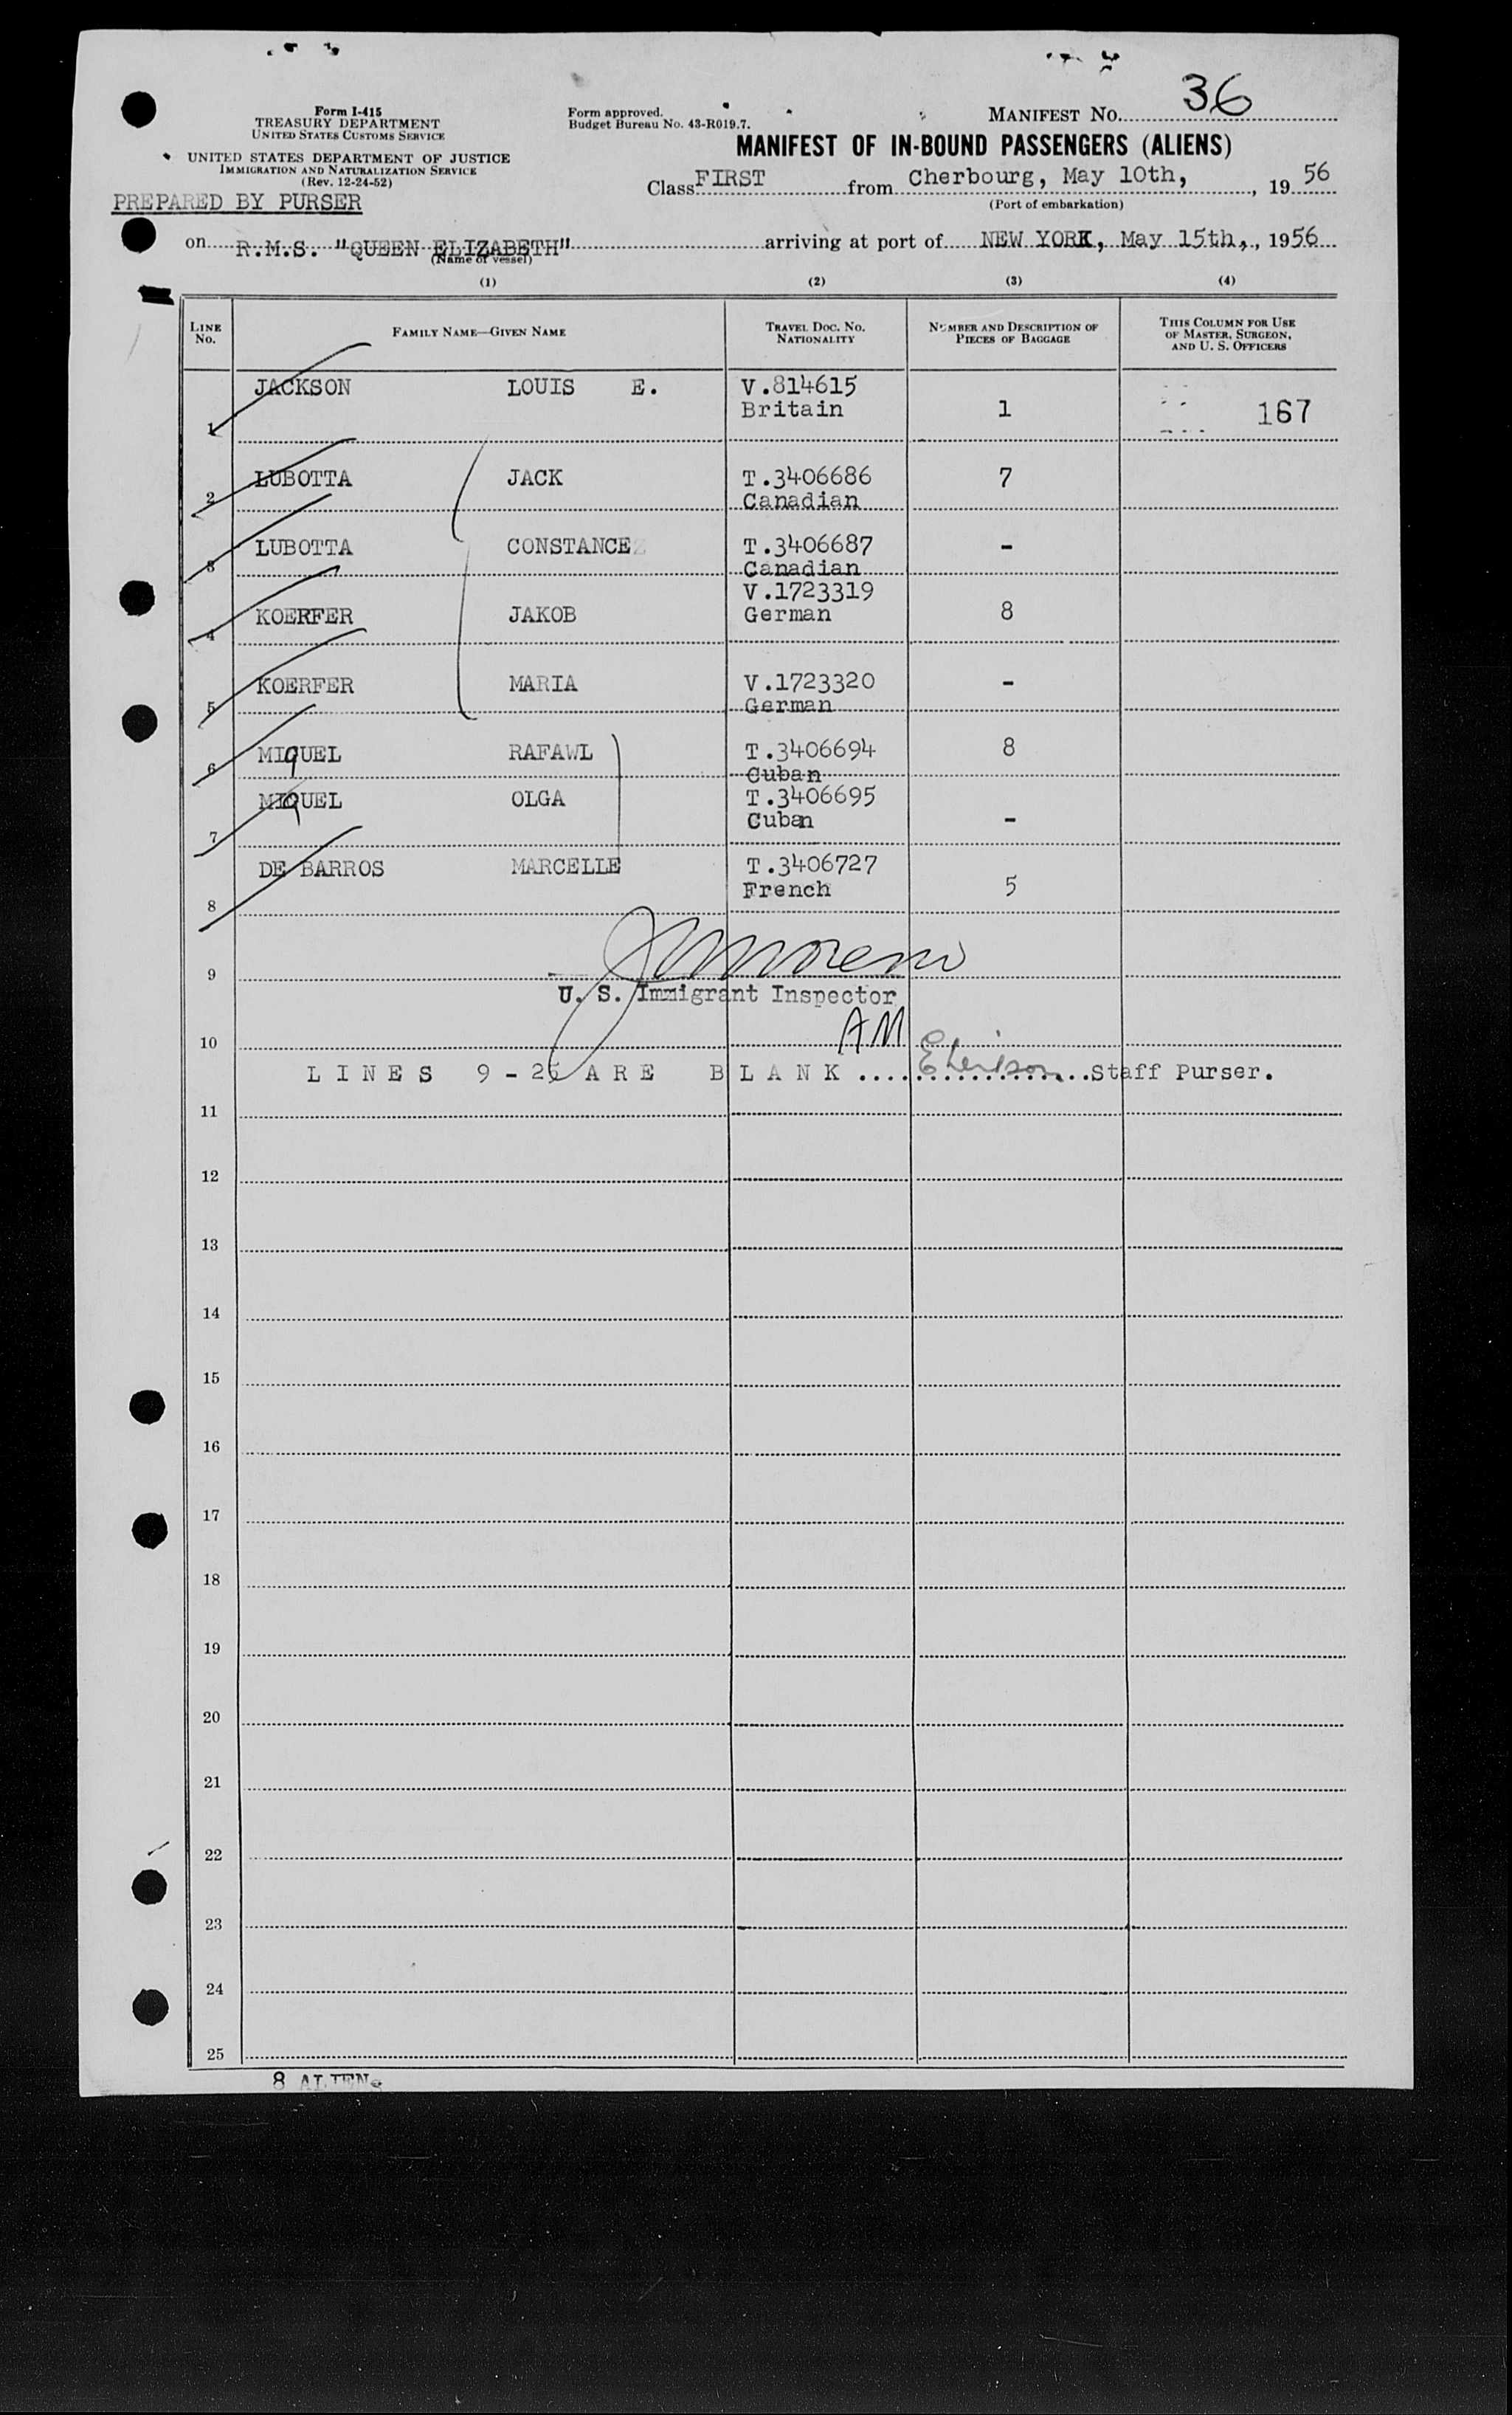 Form I-415
TREASURY DEPARTMENT
UNITED STATES CUSTOMS SERVICE
UNITED STATES DEPARTMENT OF JUSTICE
IMMIGRATION AND NATURALIZATION SERVICE
(Rev. 12-24-52)
PREPARED BY PURSER
Form approved.
Budget Bureau No. 43-R019.7.
MANIFEST No. 36
MANIFEST OF IN-BOUND PASSENGERS (ALIENS)
Class FIRST from Cherbourg, May 10th, , 19 56
(Port of embarkation)
on R.M.S. "QUEEN ELIZABETH" arriving at port of NEW YORK, May 15th, , 1956
(Name of vessel)
(1) (2) (3) (4)
LINE No. FAMILY NAME—GIVEN NAME TRAVEL DOC. No. NATIONALITY NUMBER AND DESCRIPTION OF PIECES OF BAGGAGE THIS COLUMN FOR USE OF MASTER, SURGEON, AND U. S. OFFICERS
1 JACKSON LOUIS E. V.814615 Britain 1 167
2 LUBOTTA JACK T.3406686 Canadian 7
3 LUBOTTA CONSTANCE T.3406687 Canadian -
4 KOERFER JAKOB V.1723319 German 8
5 KOERFER MARIA V.1723320 German -
6 MIqUEL RAFAWL T.3406694 Cuban 8
7 MIqUEL OLGA T.3406695 Cuban -
8 DE BARROS MARCELLE T.3406727 French 5
9
U. S. Immigrant Inspector
10 AM
LINES 9-25 ARE BLANK .................... Staff Purser.
11
12
13
14
15
16
17
18
19
20
21
22
23
24
25
8 ALIENS